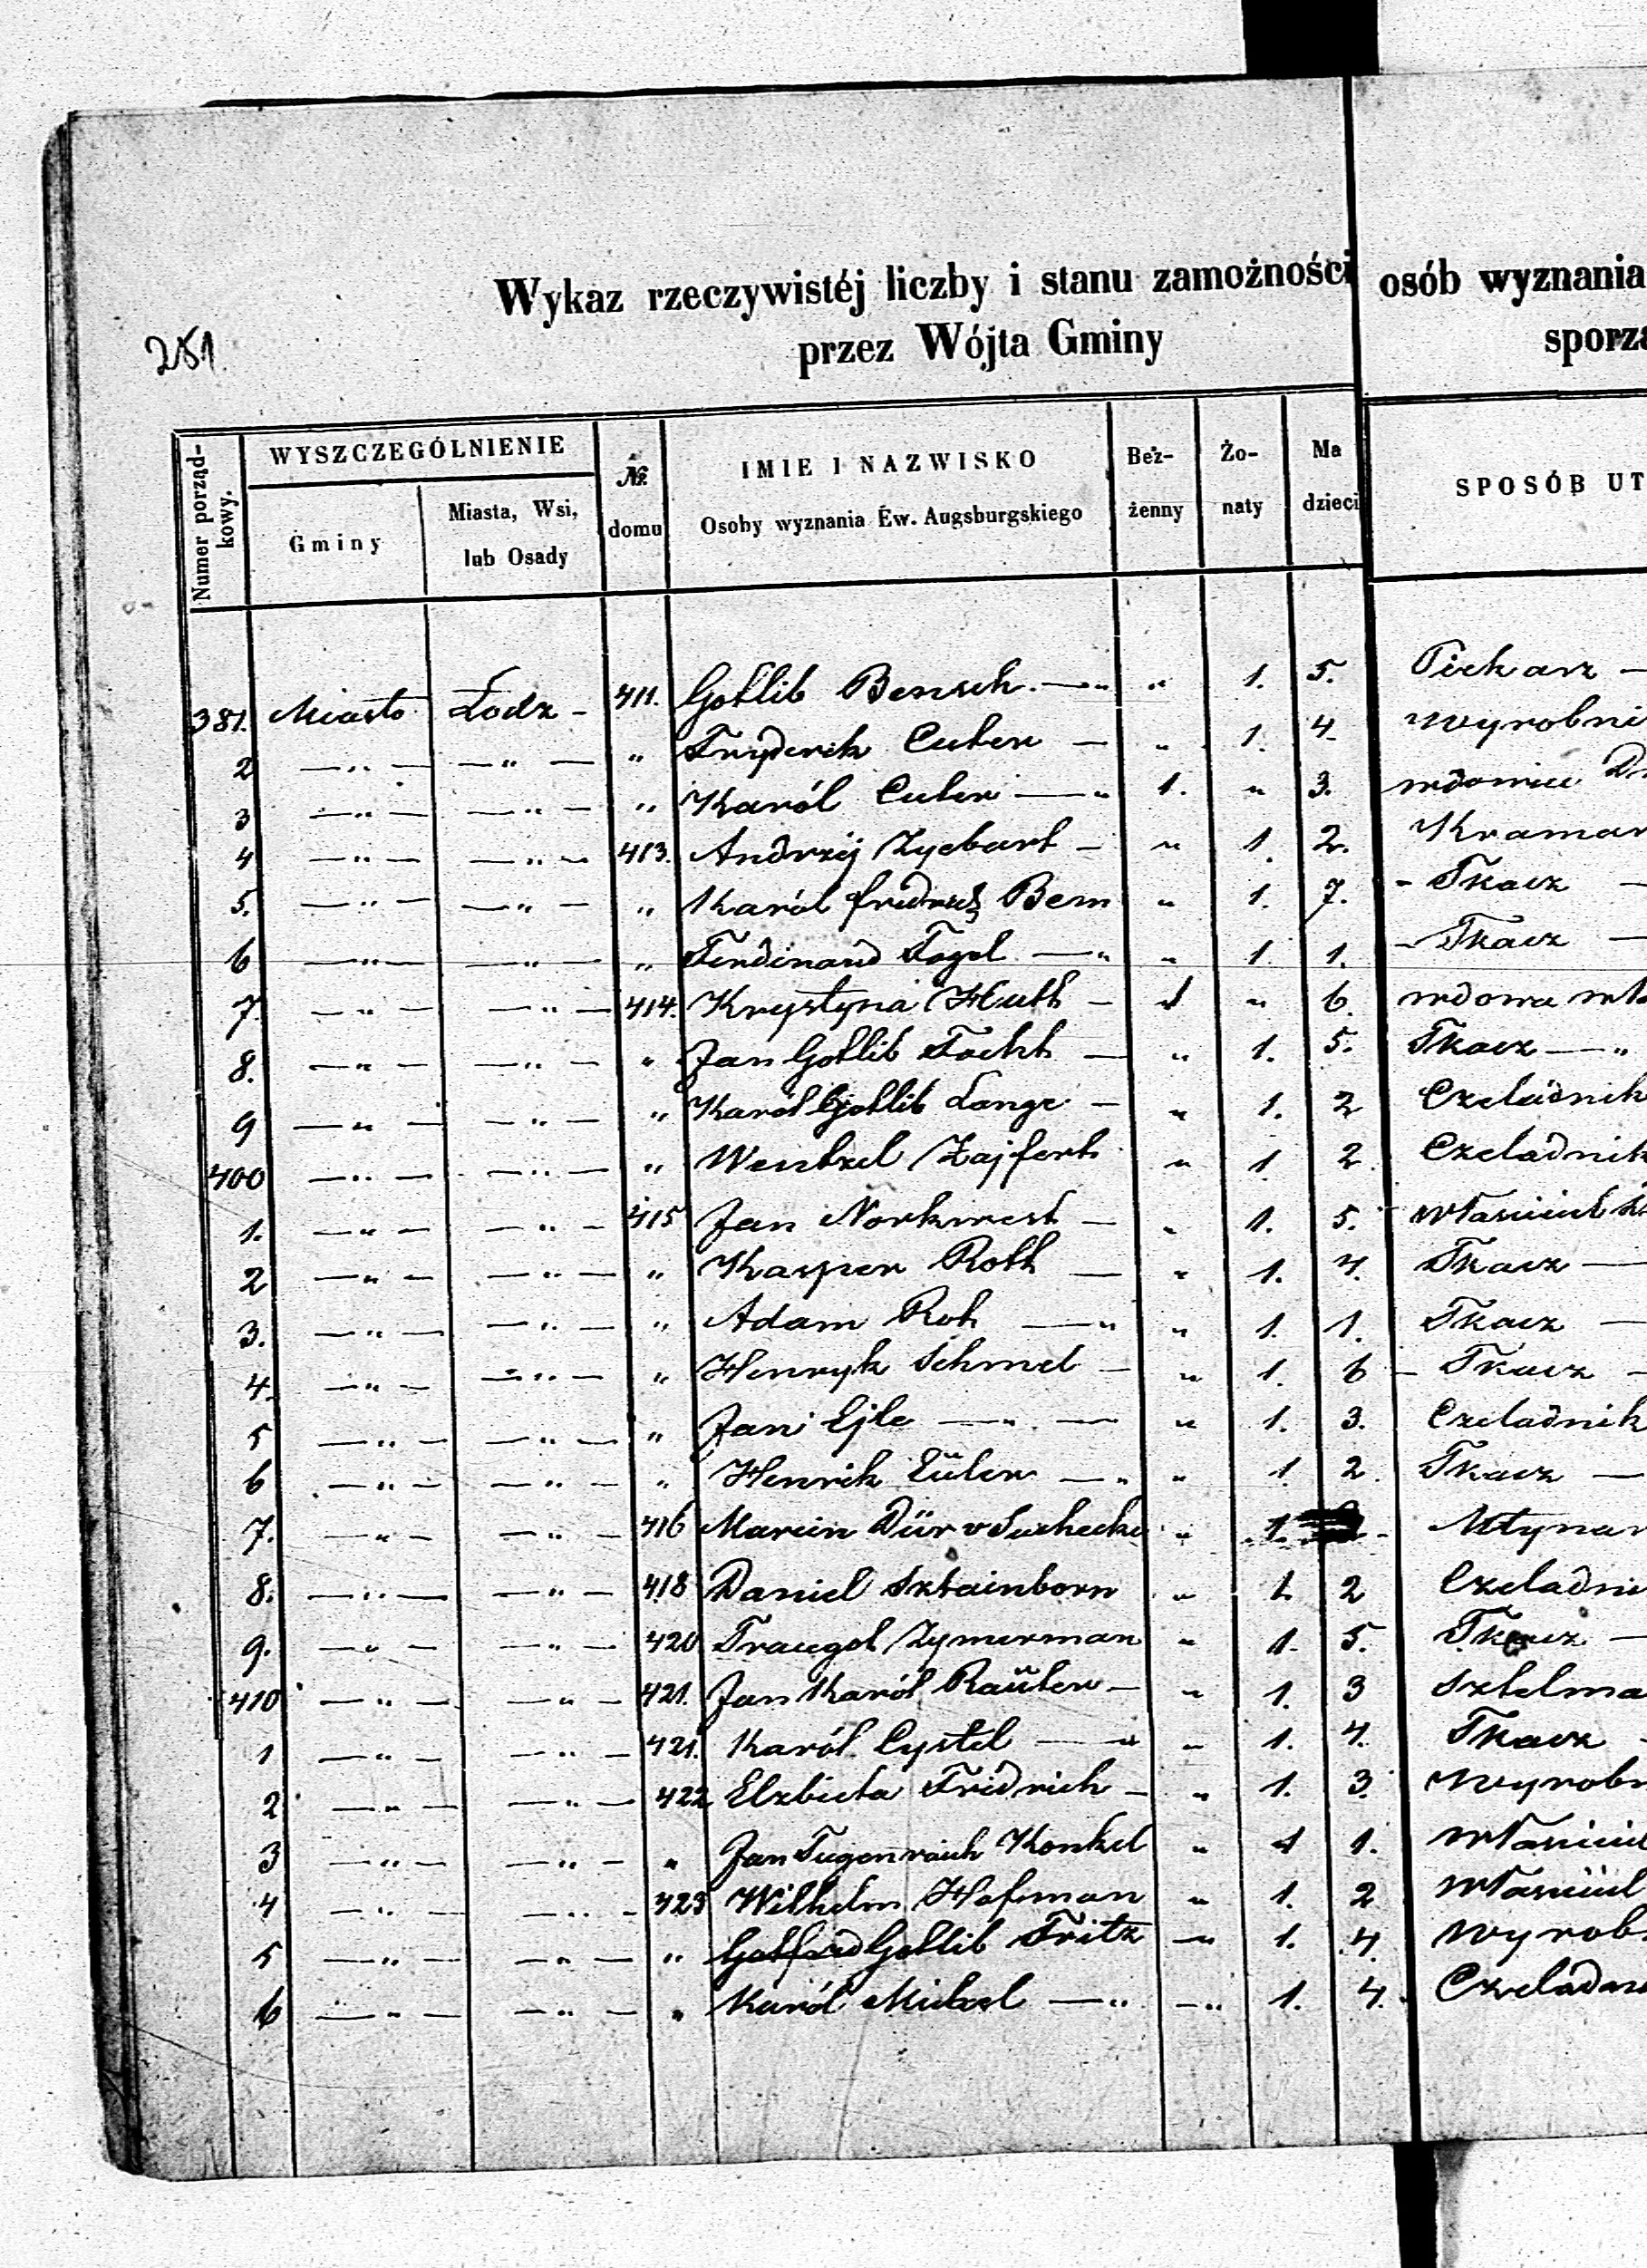 Wykaz rzeczywistéj liczby i stanu zamożności osób wyznania
przez Wójta Gminy sporzą
251.
Numer porząd-
kowy.
WYSZCZEGÓLNIENIE
Gminy
Miasta, Wsi,
lub Osady
№
domu
IMIE I NAZWISKO
Osoby wyznania Ew. Augsburgskiego
Bez-
żenny
Żo-
naty
Ma
dzieci
SPOSÓB UT
381. Miasto Łodz - 411. Gotlib Bensch. — " " 1. 5. Piekarz —
2 — " — — " — " Fryderik Euler — " 1. 4. wyrobni
3 — " — — " — " Karól Euler — " 1. " 3. wdowiec
4 — " — — " — 413. Andrzéj Zyebart — " 1. 2. Kramar
5. — " — — " — " Karól Bem " 1. 7. - Tkacz —
6 — " — — " — " Ferdinand Fogel — " " 1. 1. - Tkacz —
7. — " — — " — 414. Krystyna Huth — 1 " 6. wdowa
8. — " — — " — " Jan Gotlib Focht — " 1. 5. Tkacz — "
9 — " — — " — " Karól Gotlib Lange — " 1. 2 Czeladnik
400 — " — — " — " Wentzel Zajfert " 1 2. Czeladnik
1. — " — — " — 415 Jan Norkwest — " 1. 5.
2 — " — — " — " Kasper Roth — " 1. 4. Tkacz —
3. — " — — " — " Adam Rot — " " 1. 1. Tkacz —
4. — " — — " — " Henryk Schmel — " 1. 6 - Tkacz —
5 — " — — " — " Jan Ejle — " — " 1. 3. Czeladnik
6 — " — — " — " Henrik Eüler — " " 1 2. Tkacz —
7. — " — — " — 416 Marcin Dür v " 1. - Młynar
8. — " — — " — 418 Daniel Sztainborn " 1. 2 Czeladni
9. — " — — " — 420 Traugot Zymerman " 1. 5. Tkacz —
410 — " — — " — 421. Jan Karól " 1. 3 Sztelma
1 — " — — " — 421. Karól Cystel — " " 1. 4. Tkacz -
2 — " — — " — 422 Elzbieta Fridrich — " 1. 3. Wyrobn
3 — " — — " — " Jan Konkel " 1 1.
4 — " — — " — 423 Wilhelm Hofman " 1. 2
5 — " — — " — " Gotlib Fritz — " 1. 4. Wyrob
6 — " — — " — " Karól — " — " 1. 4. Czeladn